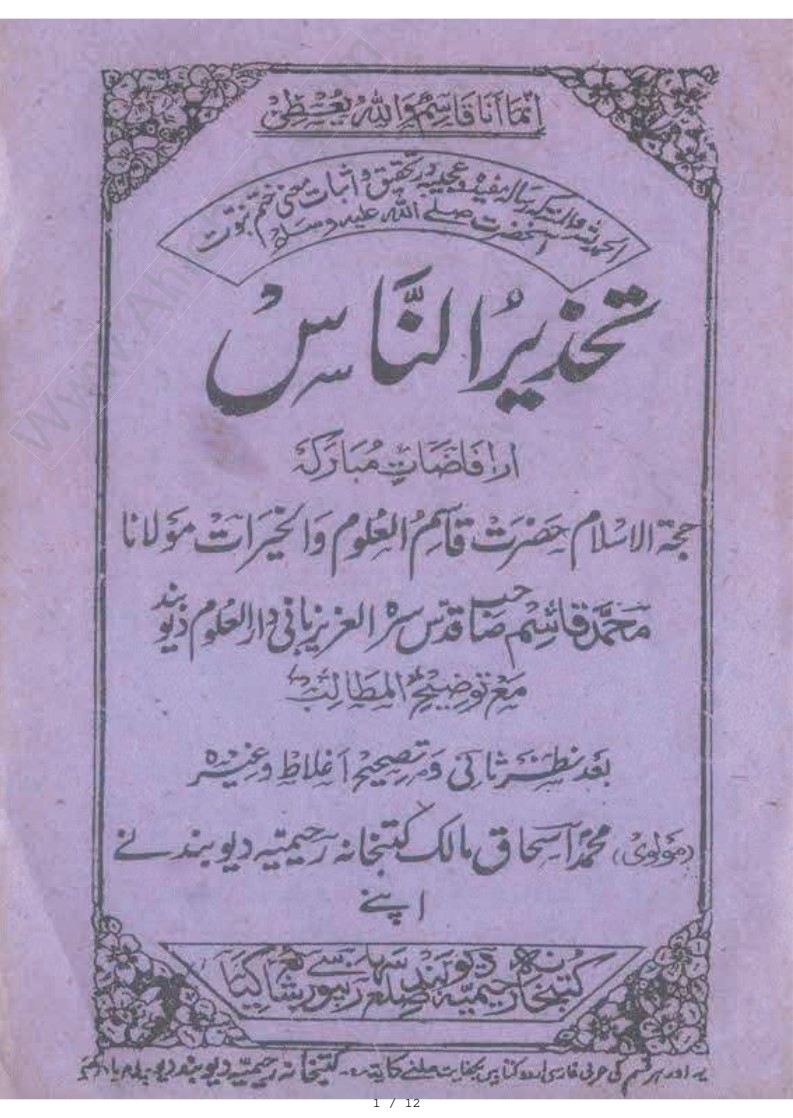 انما انا قاسم والله يعطى
الحمد للہ والمنۃ کہ رسالہ مفیدہ عجیبہ در تحقیق و اثبات معنی ختم نبوت
آنحضرت صلے اللہ علیہ وسلم
تحذیرُ النَّاس
از افاضات مُبارکہ
حجۃ الاسلام حضرت قاسم العلوم والخیرات مولانا
محمد قاسم صاحب قدس سرہ العزیز بانی دارالعلوم دیوبند
مع توضیح المطالب
بعد نظر ثانی و تصحیح اغلاط وغیرہ
(مولوی) محمد اسحاق مالک کتبخانہ رحیمیہ دیوبند نے
اپنے
کتبخانہ رحیمیہ دیوبند ضلع سہارنپور سے شائع کیا
یہ اور ہر قسم کی عربی فارسی اردو کتابیں بکفایت ملنے کا پتہ:۔ کتبخانہ رحیمیہ دیوبند
1 / 12